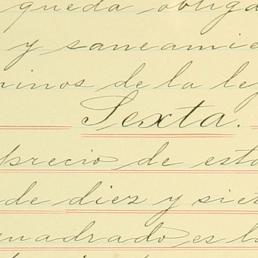 queda obliga
y saneamie
minos de la le
Sexta.
precio de est
de diez y siet
cuadrado es la